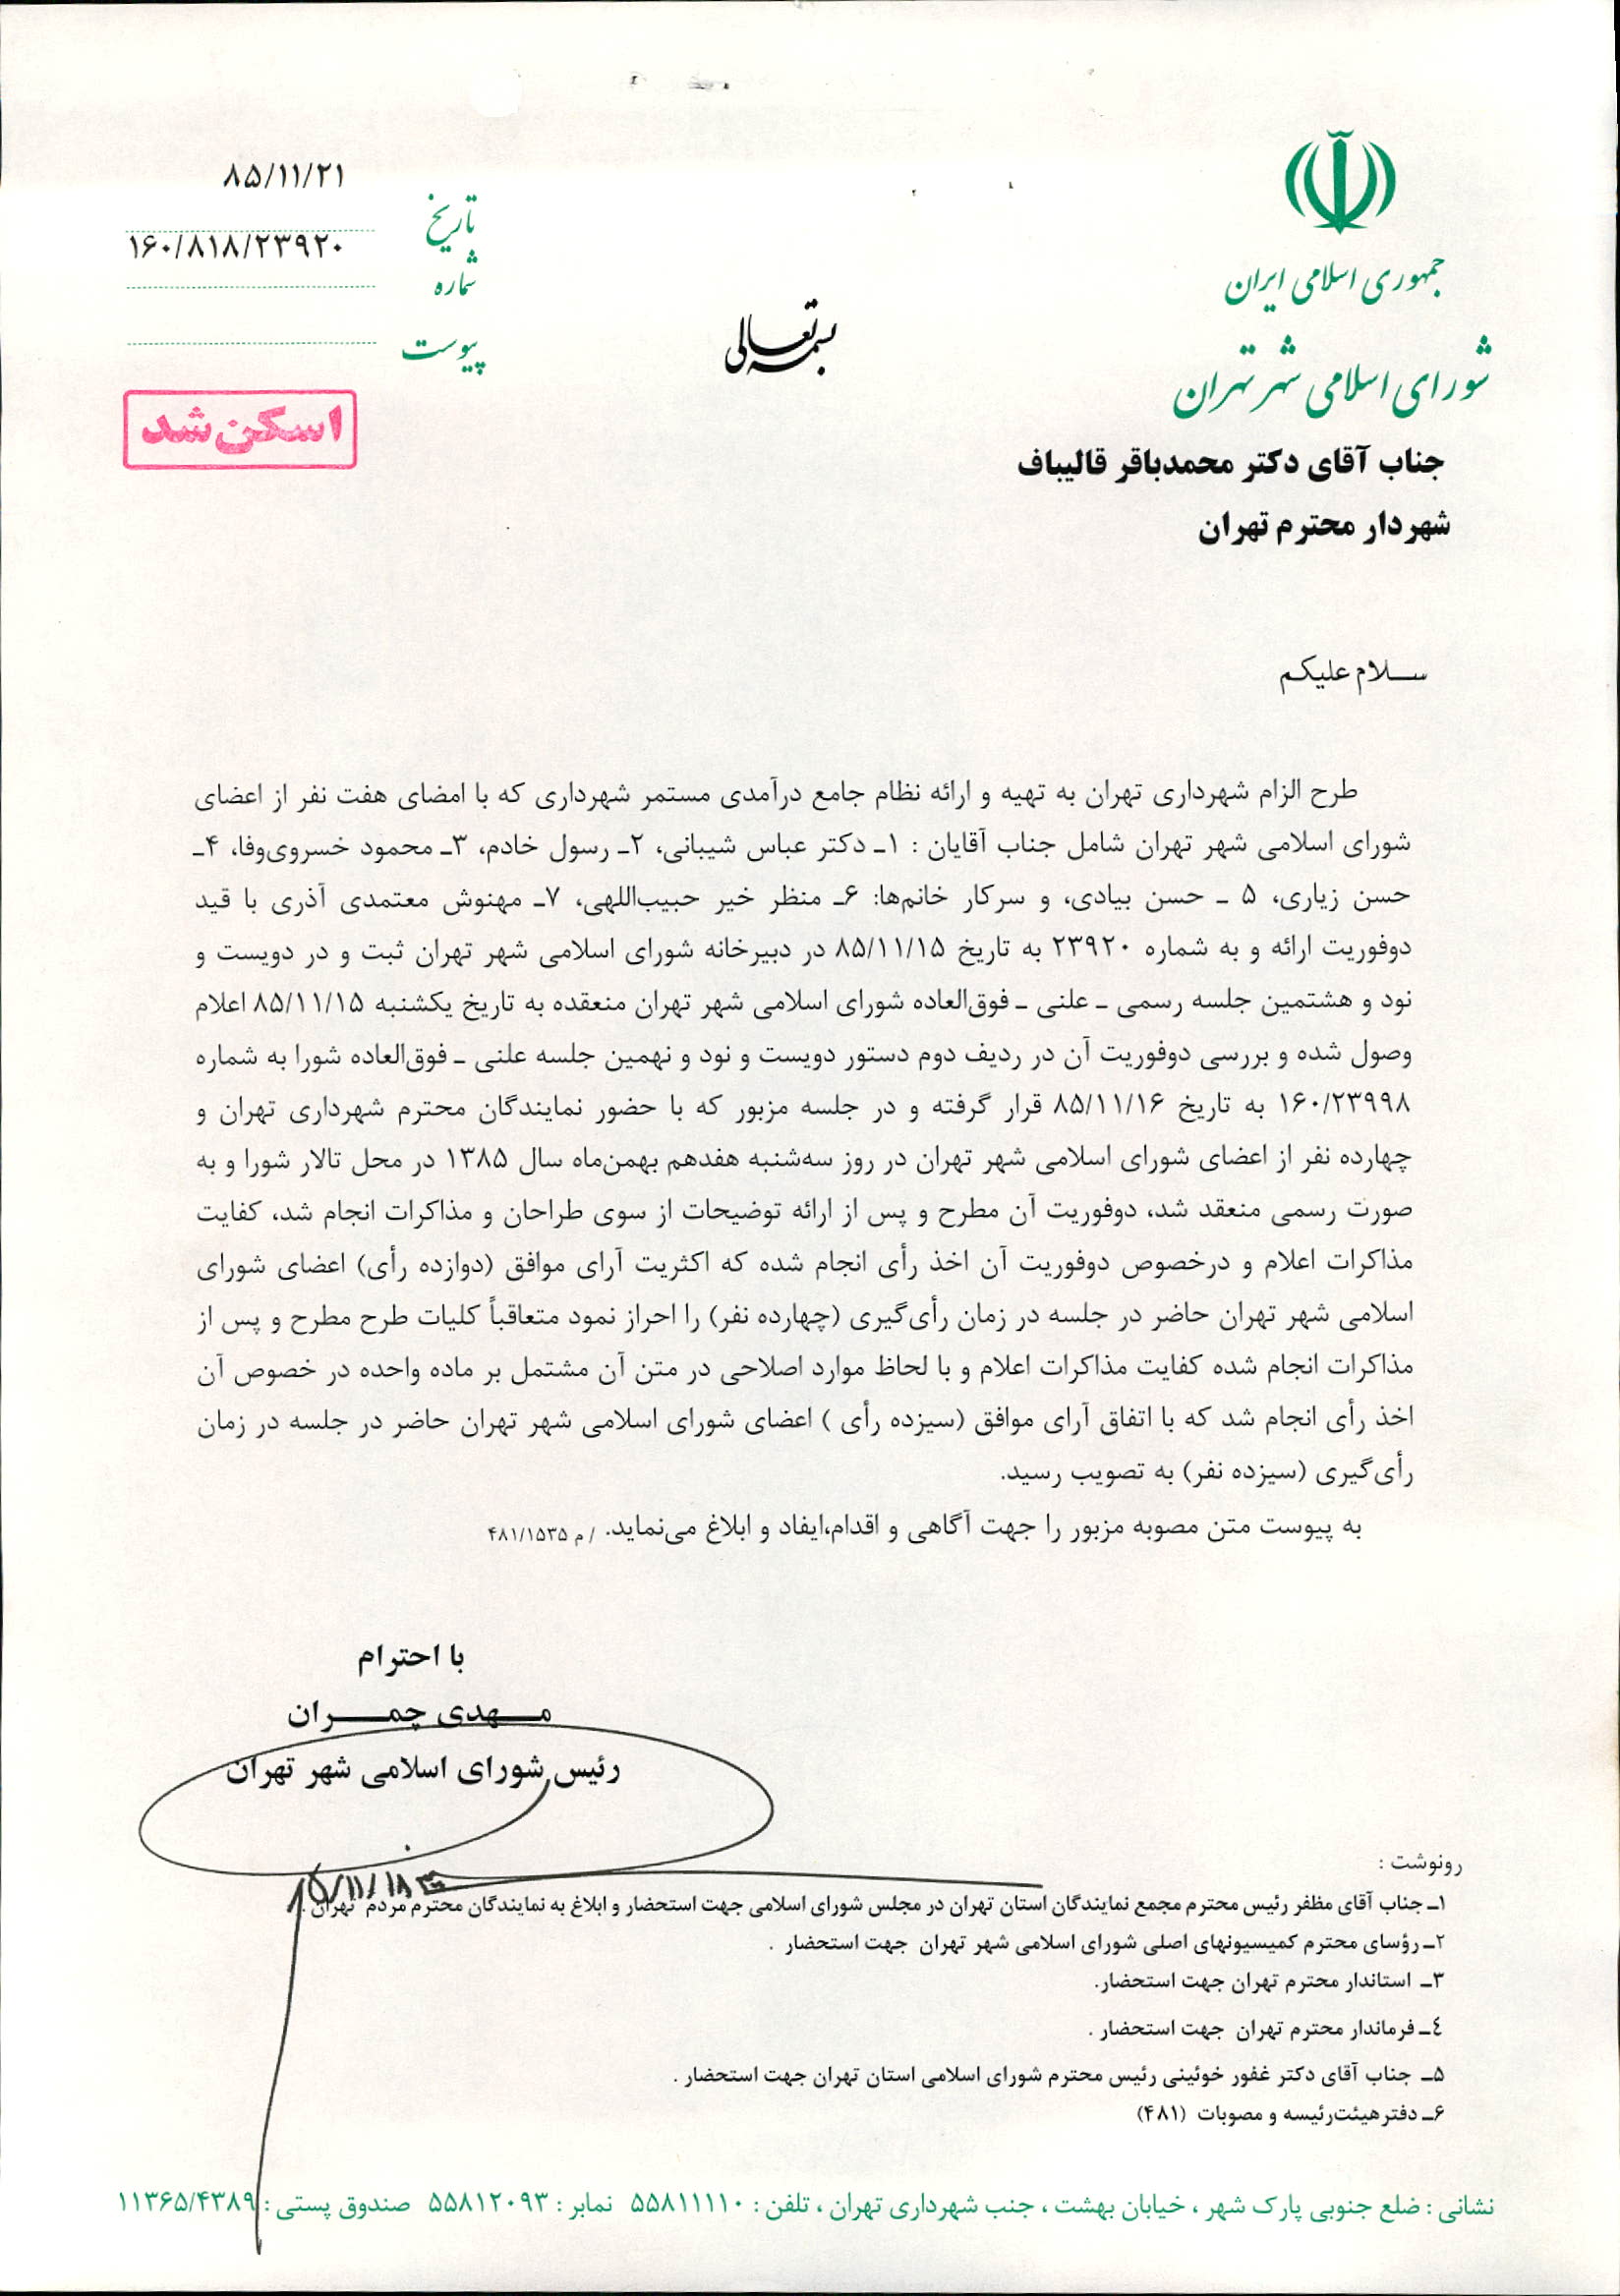 جمهوری اسلامی ایران
شورای اسلامی شهر تهران
۸۵/۱۱/۲۱
تاریخ
۱۶۰/۸۱۸/۲۳۹۲۰
شماره
پیوست
اسکن شد
بسمه تعالی
جناب آقای دکتر محمدباقر قالیباف
شهردار محترم تهران
سلام علیکم
طرح الزام شهرداری تهران به تهیه و ارائه نظام جامع درآمدی مستمر شهرداری که با امضای هفت نفر از اعضای
شورای اسلامی شهر تهران شامل جناب آقایان : ۱ـ دکتر عباس شیبانی، ۲ـ رسول خادم، ۳ـ محمود خسروی‌وفا، ۴ـ
حسن زیاری، ۵ ـ حسن بیادی، و سرکار خانم‌ها: ۶ـ منظر خیر حبیب‌اللهی، ۷ـ مهنوش معتمدی آذری با قید
دوفوریت ارائه و به شماره ۲۳۹۲۰ به تاریخ ۸۵/۱۱/۱۵ در دبیرخانه شورای اسلامی شهر تهران ثبت و در دویست و
نود و هشتمین جلسه رسمی ـ علنی ـ فوق‌العاده شورای اسلامی شهر تهران منعقده به تاریخ یکشنبه ۸۵/۱۱/۱۵ اعلام
وصول شده و بررسی دوفوریت آن در ردیف دوم دستور دویست و نود و نهمین جلسه علنی ـ فوق‌العاده شورا به شماره
۱۶۰/۲۳۹۹۸ به تاریخ ۸۵/۱۱/۱۶ قرار گرفته و در جلسه مزبور که با حضور نمایندگان محترم شهرداری تهران و
چهارده نفر از اعضای شورای اسلامی شهر تهران در روز سه‌شنبه هفدهم بهمن‌ماه سال ۱۳۸۵ در محل تالار شورا و به
صورت رسمی منعقد شد، دوفوریت آن مطرح و پس از ارائه توضیحات از سوی طراحان و مذاکرات انجام شد، کفایت
مذاکرات اعلام و درخصوص دوفوریت آن اخذ رأی انجام شده که اکثریت آرای موافق (دوازده رأی) اعضای شورای
اسلامی شهر تهران حاضر در جلسه در زمان رأی‌گیری (چهارده نفر) را احراز نمود متعاقباً کلیات طرح مطرح و پس از
مذاکرات انجام شده کفایت مذاکرات اعلام و با لحاظ موارد اصلاحی در متن آن مشتمل بر ماده واحده در خصوص آن
اخذ رأی انجام شد که با اتفاق آرای موافق (سیزده رأی ) اعضای شورای اسلامی شهر تهران حاضر در جلسه در زمان
رأی‌گیری (سیزده نفر) به تصویب رسید.
به پیوست متن مصوبه مزبور را جهت آگاهی و اقدام،ایفاد و ابلاغ می‌نماید. / م ۴۸۱/۱۵۳۵
با احترام
مهدی چمران
رئیس شورای اسلامی شهر تهران
۸۵/۱۱/۱۸
رونوشت :
۱ـ جناب آقای مظفر رئیس محترم مجمع نمایندگان استان تهران در مجلس شورای اسلامی جهت استحضار و ابلاغ به نمایندگان محترم مردم تهران .
۲ـ رؤسای محترم کمیسیونهای اصلی شورای اسلامی شهر تهران جهت استحضار .
۳ـ استاندار محترم تهران جهت استحضار.
٤ـ فرماندار محترم تهران جهت استحضار .
۵ـ جناب آقای دکتر غفور خوئینی رئیس محترم شورای اسلامی استان تهران جهت استحضار .
۶ـ دفتر هیئت‌رئیسه و مصوبات (۴۸۱)
نشانی : ضلع جنوبی پارک شهر ، خیابان بهشت ، جنب شهرداری تهران ، تلفن : ۵۵۸۱۱۱۱۰ نمابر : ۵۵۸۱۲۰۹۳ صندوق پستی : ۱۱۳۶۵/۴۳۸۹